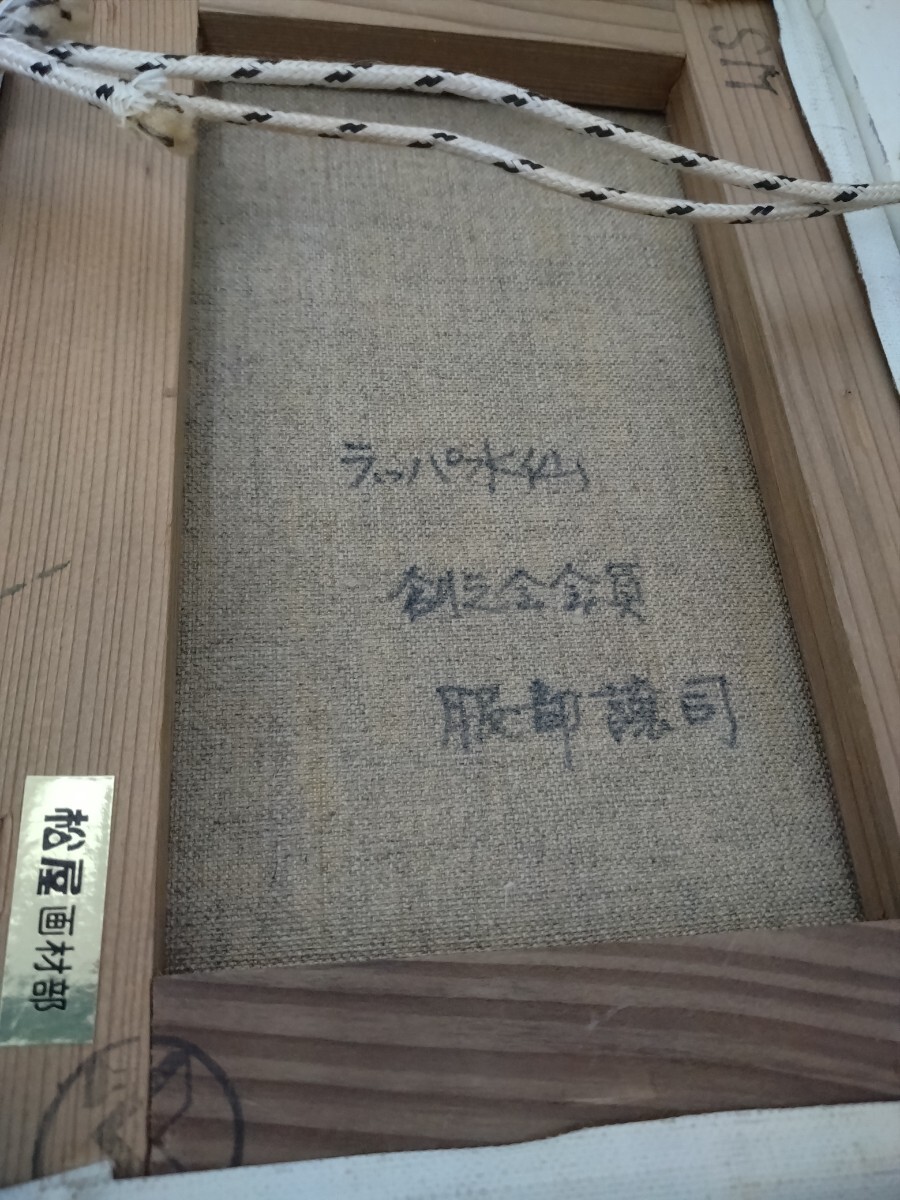 SM
ラッパ水仙
創元会会員
服部譲司
松屋画材部